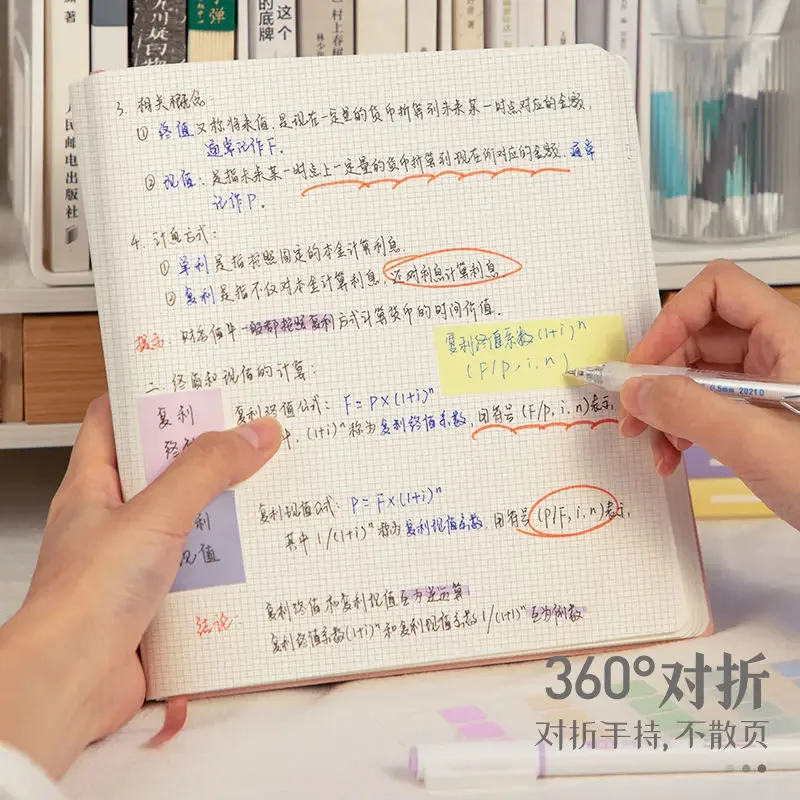 这个
的底牌
村上春树
林少华
人民邮电出版社
3. 相关概念:
① 终值 又称将来值,是现在一定量的货币折算到未来某一时点对应的金额,
通常记作F.
② 现值:是指未来某一时点上一定量的货币折算到现在所对应的金额,通常
记作P.
4. 计息方式:
① 单利是指按照固定的本金计算利息.
② 复利是指不仅对本金计算利息,还对利息计算利息.
提示: 财务估值中一般都按照复利方式计算货币的时间价值.
复利终值系数(1+i)ⁿ
(F/P,i,n)
0.5mm 2021D
二、终值和现值的计算:
复利
终
复利终值公式: F=P×(1+i)ⁿ
中,(1+i)ⁿ称为复利终值系数,用符号(F/P,i,n)表示,
利
现值
复利现值公式: P=F×(1+i)ⁿ
其中 1/(1+i)ⁿ称为复利现值系数,用符号(P/F,i,n)表示,
结论: 复利终值和复利现值互为逆运算
复利终值系数(1+i)ⁿ和复利现值系数1/(1+i)ⁿ互为倒数
360°对折
对折手持,不散页